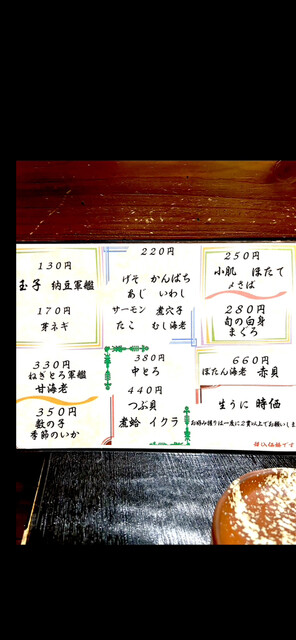 130円
玉子 納豆軍艦
170円
芽ネギ
330円
ねぎとろ軍艦
甘海老
350円
数の子
季節のいか
220円
げそ かんぱち
あじ いわし
サーモン 煮穴子
たこ むし海老
380円
中とろ
440円
つぶ貝
煮蛤 イクラ
250円
小肌 ほたて
〆さば
280円
旬の白身
まぐろ
660円
ぼたん海老 赤貝
生うに 時価
お好み握りは一度に2貫以上でお願いしま
税込価格です